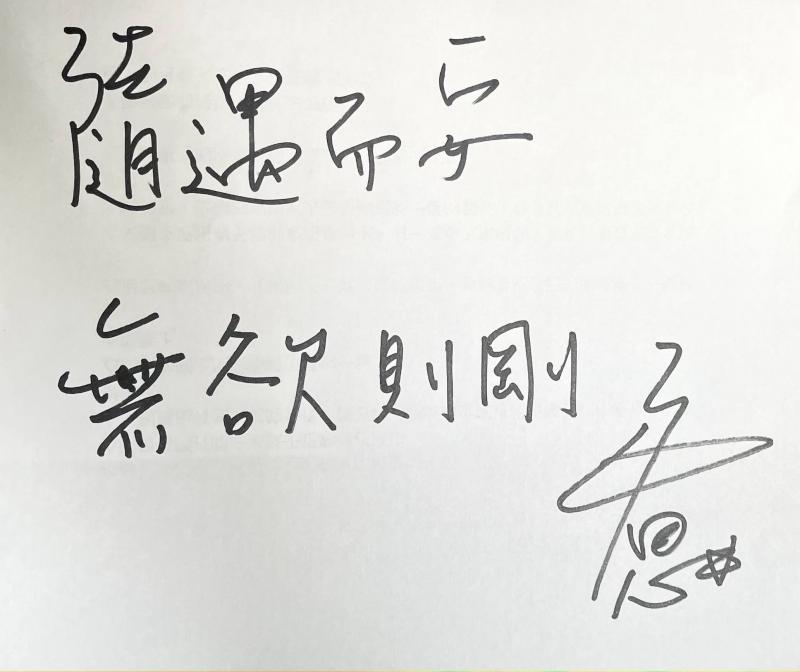 隨遇而安
無欲則剛